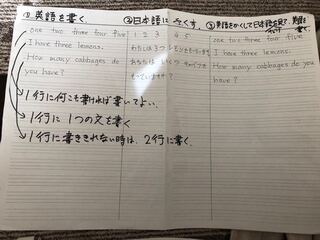 ①英語を書く.
②日本語に、やくす。
③英語をかくして日本語を見て、英語を書く
one two three four five
1 2 3 4 5
one two three four five
I have three lemons.
わたしは3つ レモンをもっています
I have three lemons.
How many cabbages do
あなたは いくつ キャベツを
How many cabbages do
you have?
もっていますか?
you have?
1行に何こも書ければ書いてよい。
1行に1つの文を書く
1行に書ききれない時は、2行に書く。